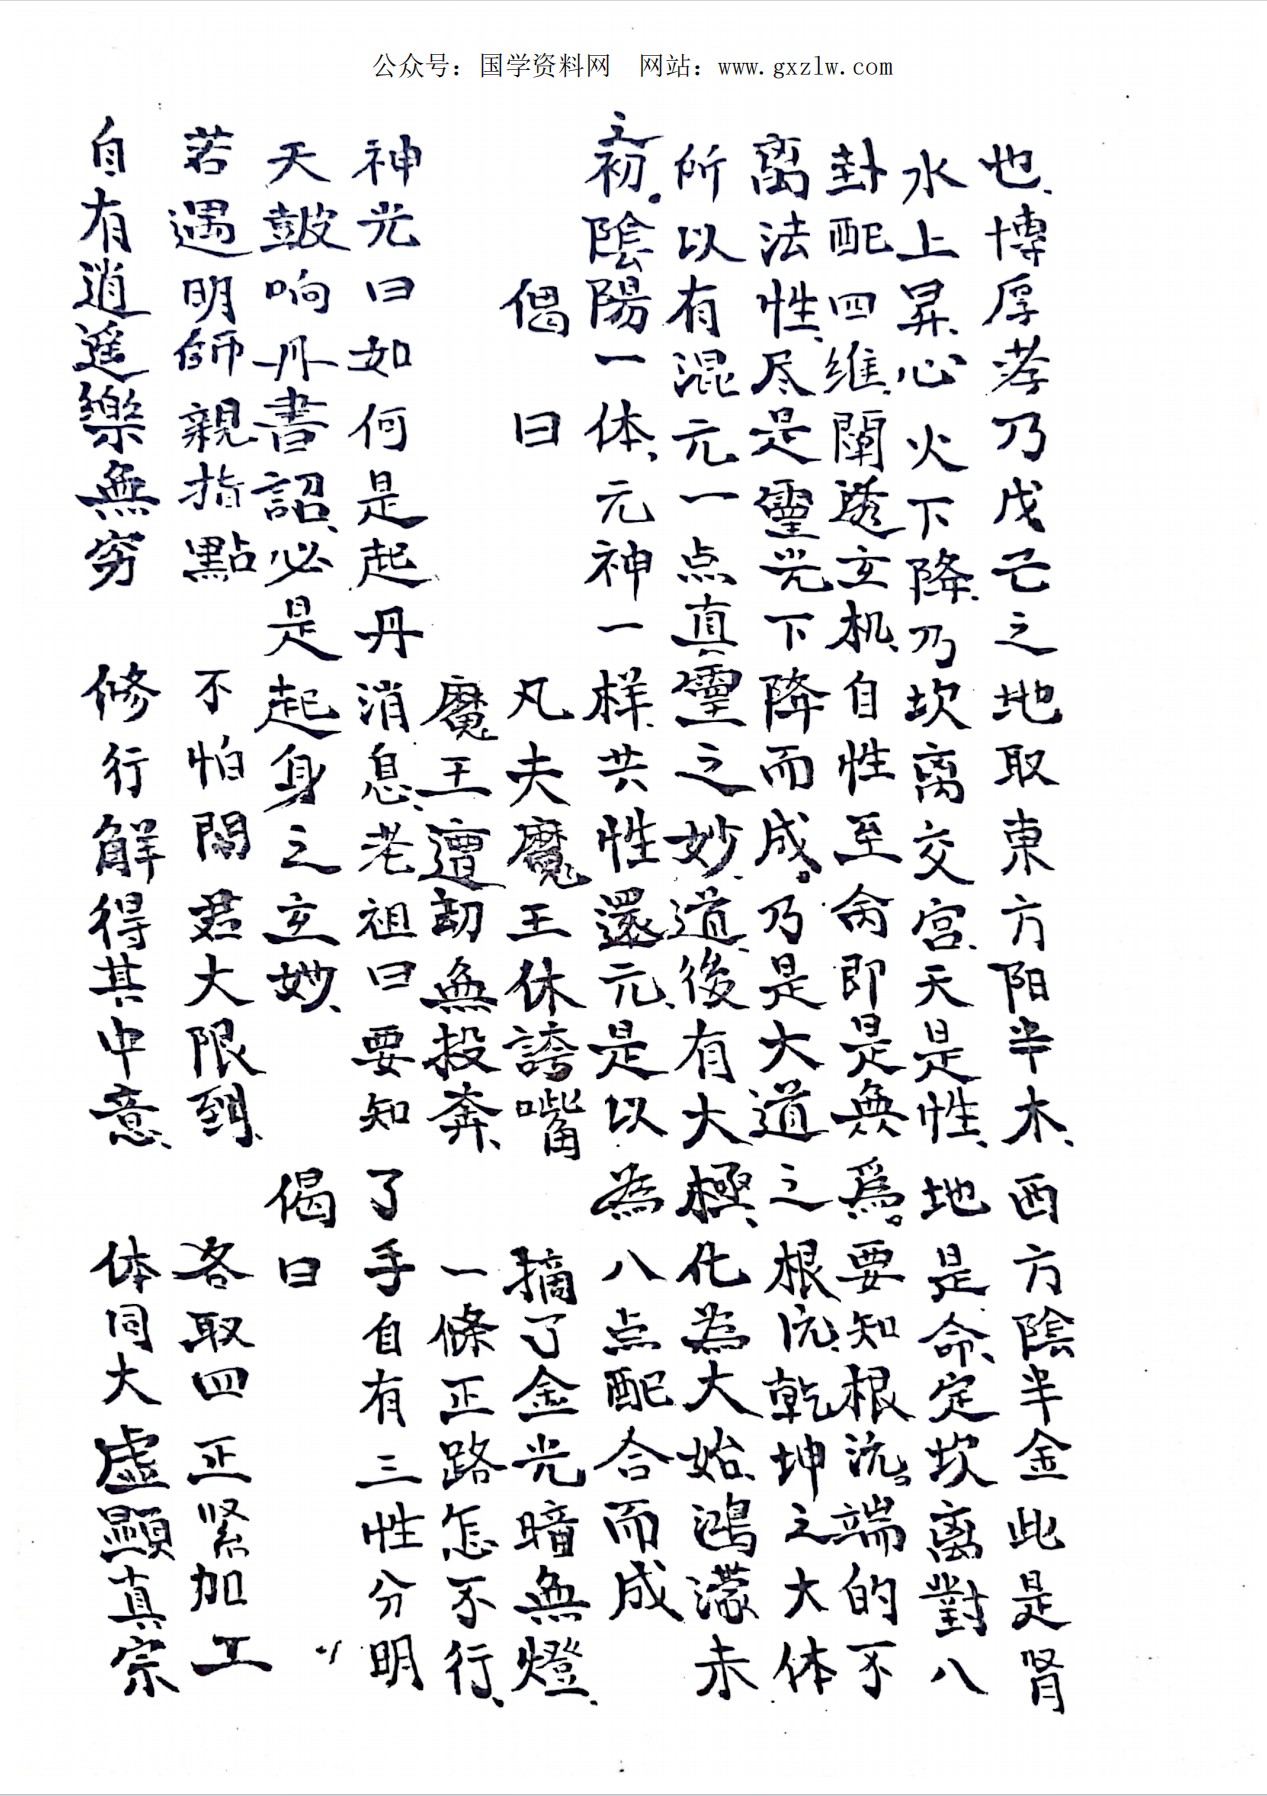 公众号：国学资料网　网站：www.gxzlw.com
也、博厚孝乃戊己之地取東方阳半木、西方陰半金此是肾
水上昇、心火下降、乃坎离交宫、天是性、地是命、定坎离對八
卦配四维、闡透玄机、自性至禽即是無爲。要知根沅。端的不
离法性、尽是靈光下降而成。乃是大道之根沅、乾坤之大体
所以有混元一点真靈之妙道、後有大極、化為大始、鴻濛未
之初。陰陽一体、元神一样、共性還元、是以為八点配合而成
偈曰
凡夫魔王休誇嘴　摘了金光暗無燈、
魔王遭劫無投奔、　一條正路怎不行、
神光曰如何是起丹消息、老祖曰要知了手自有三性分明
天鼓响丹書詔、必是起身之玄妙、　偈曰
若遇明師親指點　不怕閻君大限到、　各取四正紧加工
自有逍遥樂無穷　修行解得其中意、　体同大虚顯真宗